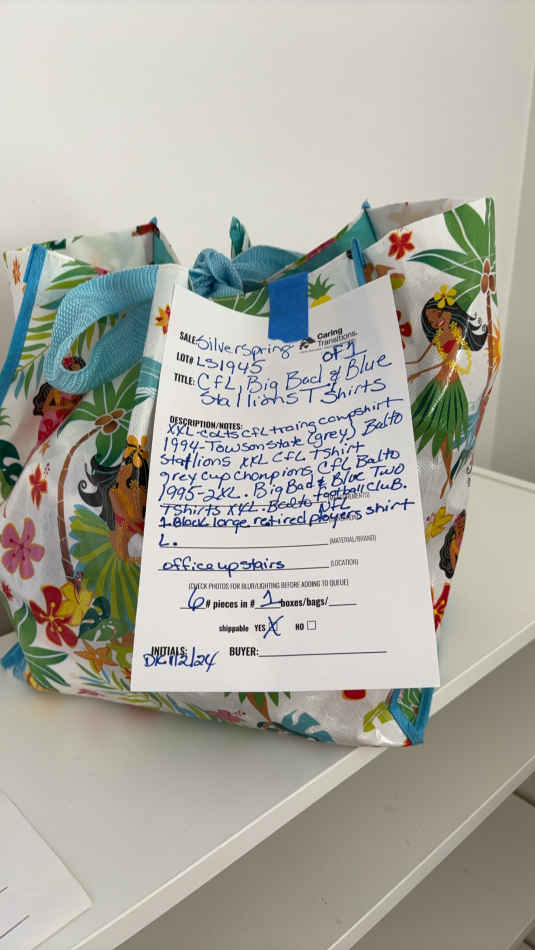 SALE: Silver Spring
Caring Transitions.
LOT# LS1945 OF 1
TITLE: CFL, Big Bad & Blue
Stallions T Shirts
DESCRIPTION/NOTES:
XXL-colts CFL traing campshirt
1994-Towson State (grey) Balto
Stallions XXL CFL TShirt
grey cup chonpions CFL Balto
1995-2XL. Big Bad & Blue Two
TShirts XXL. Balto football CLUB.
1-Black large retired players shirt NFL
L. (MATERIAL/BRAND)
office upstairs (LOCATION)
(CHECK PHOTOS FOR BLUR/LIGHTING BEFORE ADDING TO QUEUE)
6 # pieces in # 1 boxes/bags/
shippable YES X NO
INITIALS: BUYER:
11/2/24